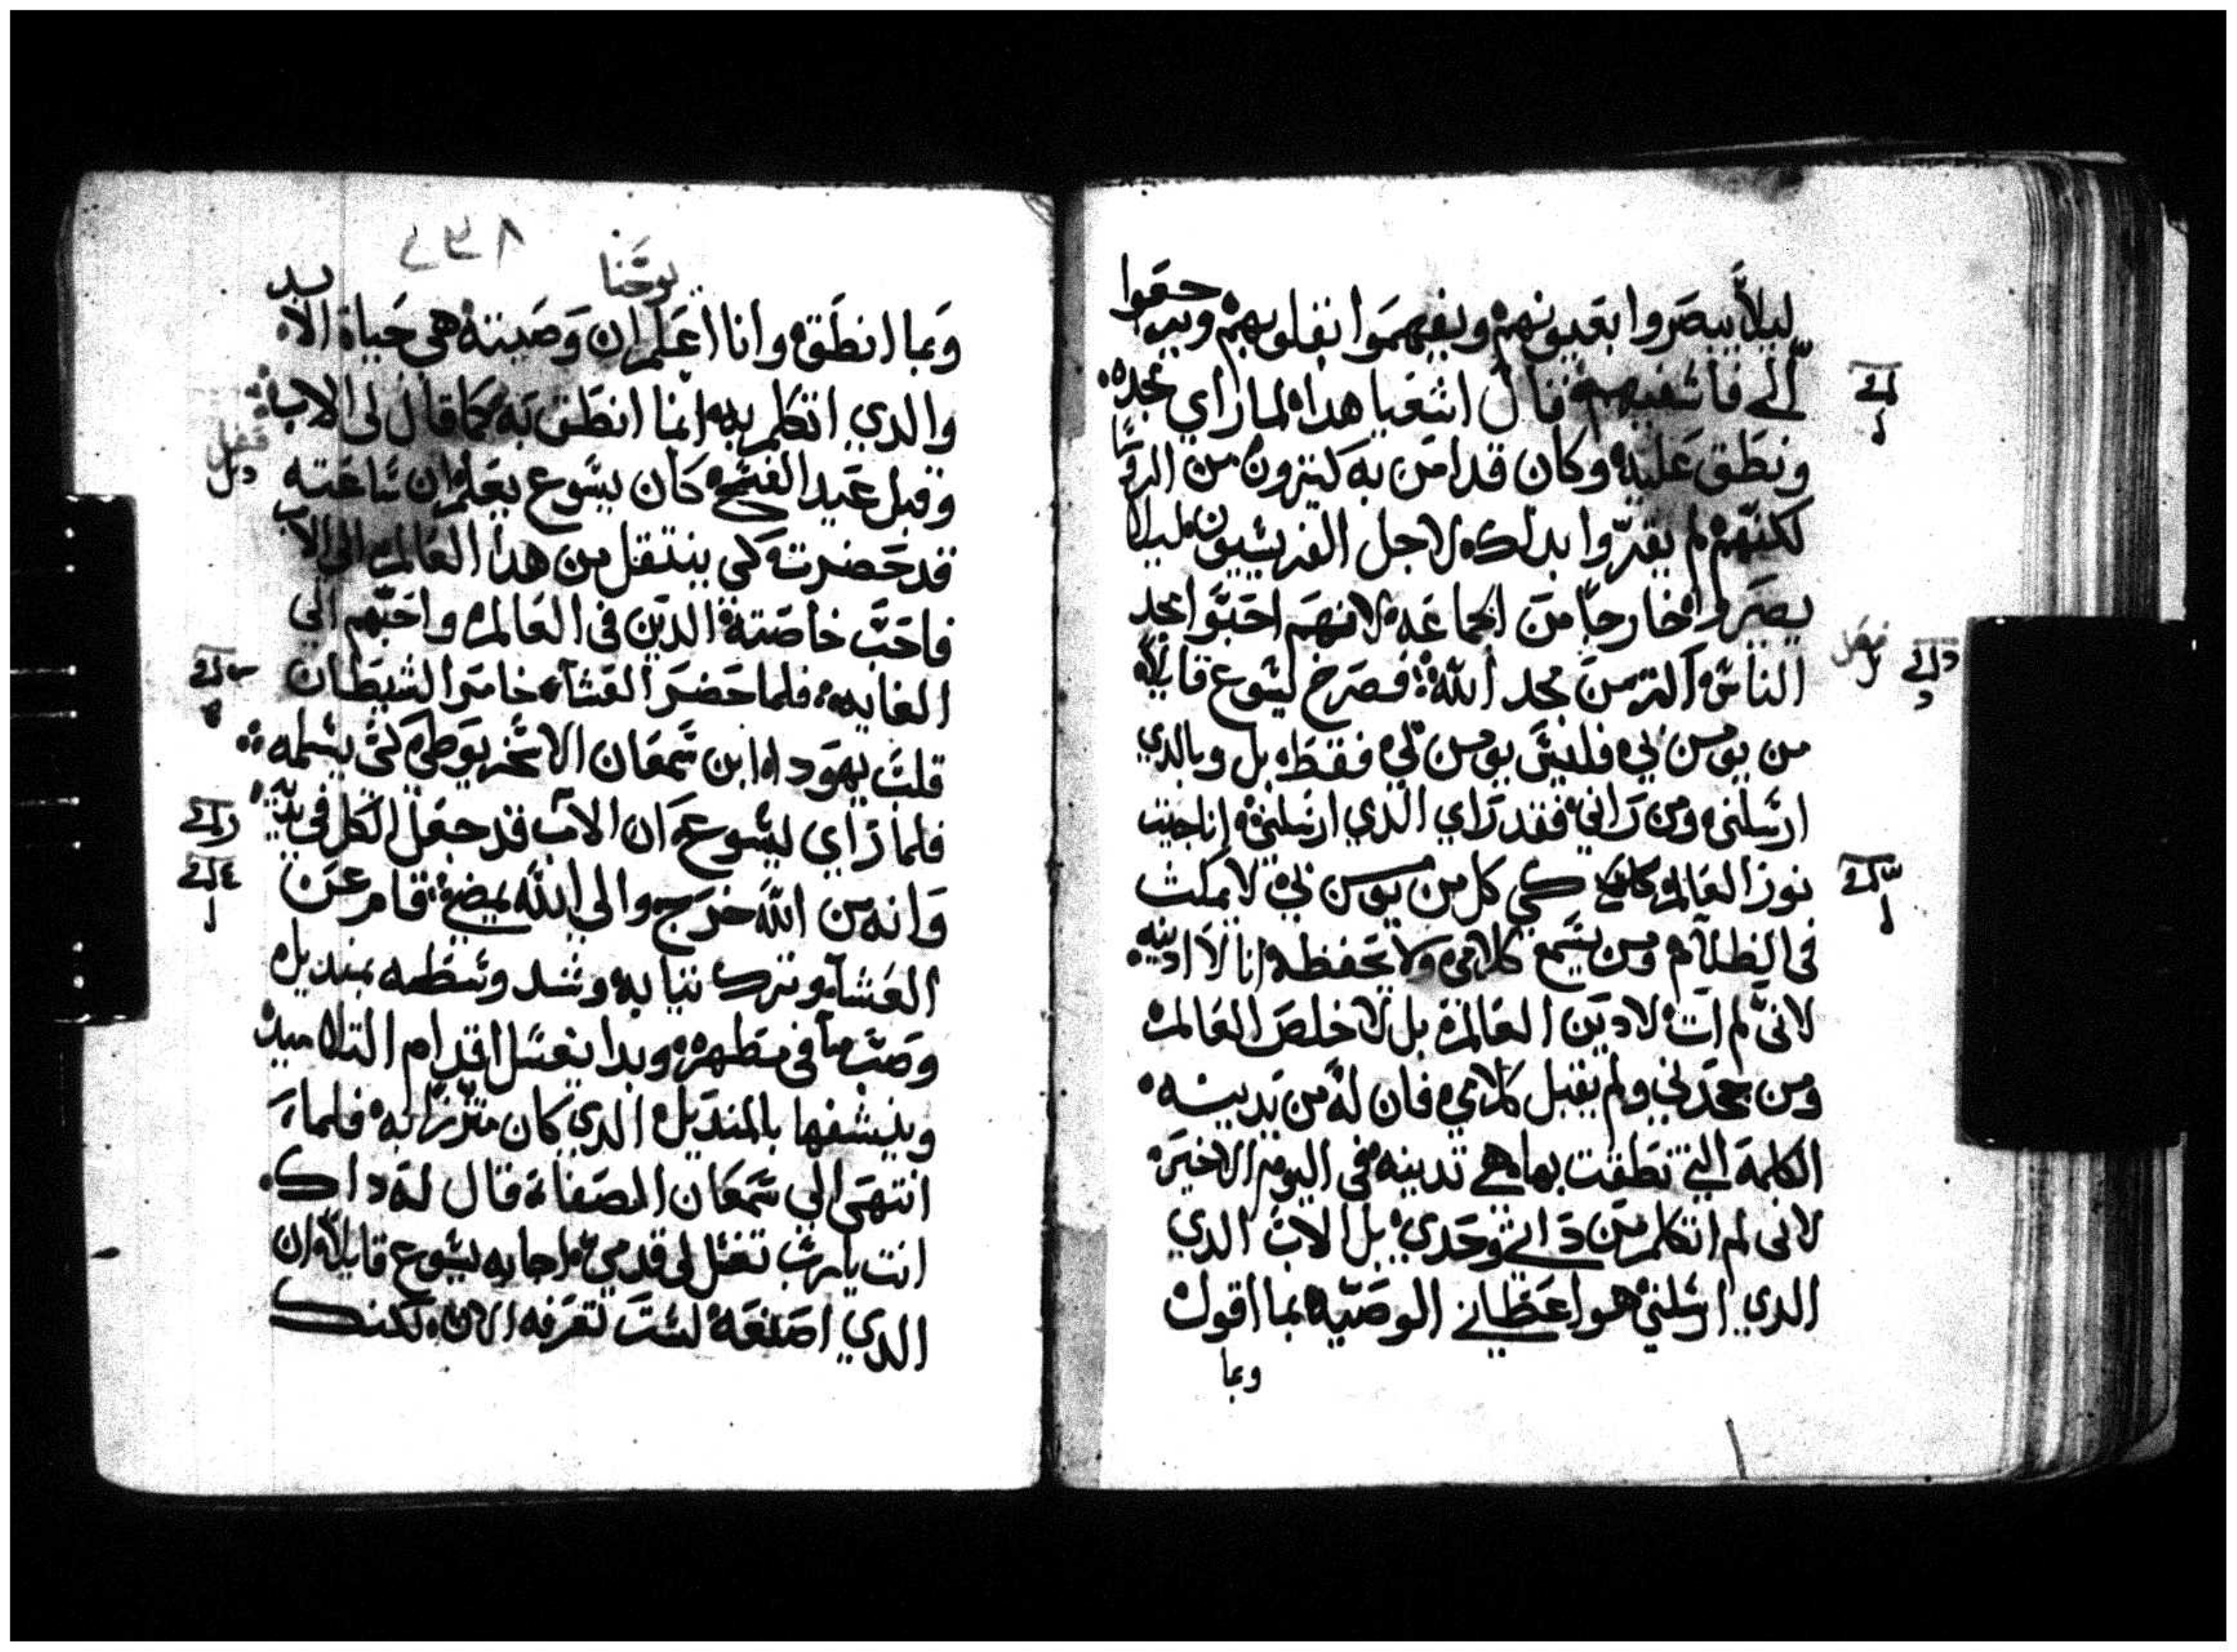 ليلا يبصروا بعيونهم ويفهموا بقلوبهم ويرجعوا
الي فاشفيهم قال اشعيا هدا لما راي مجده
ونطق عليه وكان قد امن به كتيرون من الروسا
لكنهم لم يقروا بدلك لاجل الفريسيون ليلا
يصيروا خارجا من الجماعه لانهم احبوا مجد
الناس اكتر من مجد الله فصرخ ليسوع قايلا
من يومن بي فليس يومن بي فقط بل وبالدي
ارسلني ومن راني فقد راي الدي ارسلني انا جيت
نور العالم كي كل من يومن بي لا يمكت
في الظلام ومن يسمع كلامي ولا يحفظه انا لا ادينه
لاني لم ات لادين العالم بل لاخلص العالم
ومن جحدني ولم يقبل كلامي فان له من يدينه
الكلمة التي نطقت بها هي تدينه في اليوم الاخير
لاني لم اتكلم من داتي وحدي بل الاب الدي
الدي ارسلني هو اعطاني الوصيه بما اقول
وبما
فصل
يوحنا
وبما انطق وانا اعلم ان وصيته هي حياة الابد
والدي اتكلم به انما انطق به كما قال لي الاب
وقبل عيد الفسح كان يسوع يعلم ان ساعته
قد حضرت كي ينتقل من هدا العالم الي الاب
فاحب خاصته الدين في العالم واحبهم الي
الغايه فلما حضر العشا خامر الشيطان
قلب يهودا ابن سمعان الاسخريوطي كي يسلمه
فلما راي ليسوع ان الاب قد جعل الكل في يديه
وانه من الله خرج والي الله يمضي قام عن
العشا وترك تيابه وشد وسطه بمنديل
وصب ما في مطهره وبدا يغسل اقدام التلاميد
وينشفها بالمنديل الدي كان متزرا به فلما
انتهي الي سمعان الصفاة قال له داك
انت يا رب تغسل لي قدمي اجابه يسوع قايلا ان
الدي اصنعه لست تعرفه الان لكنك
فصل